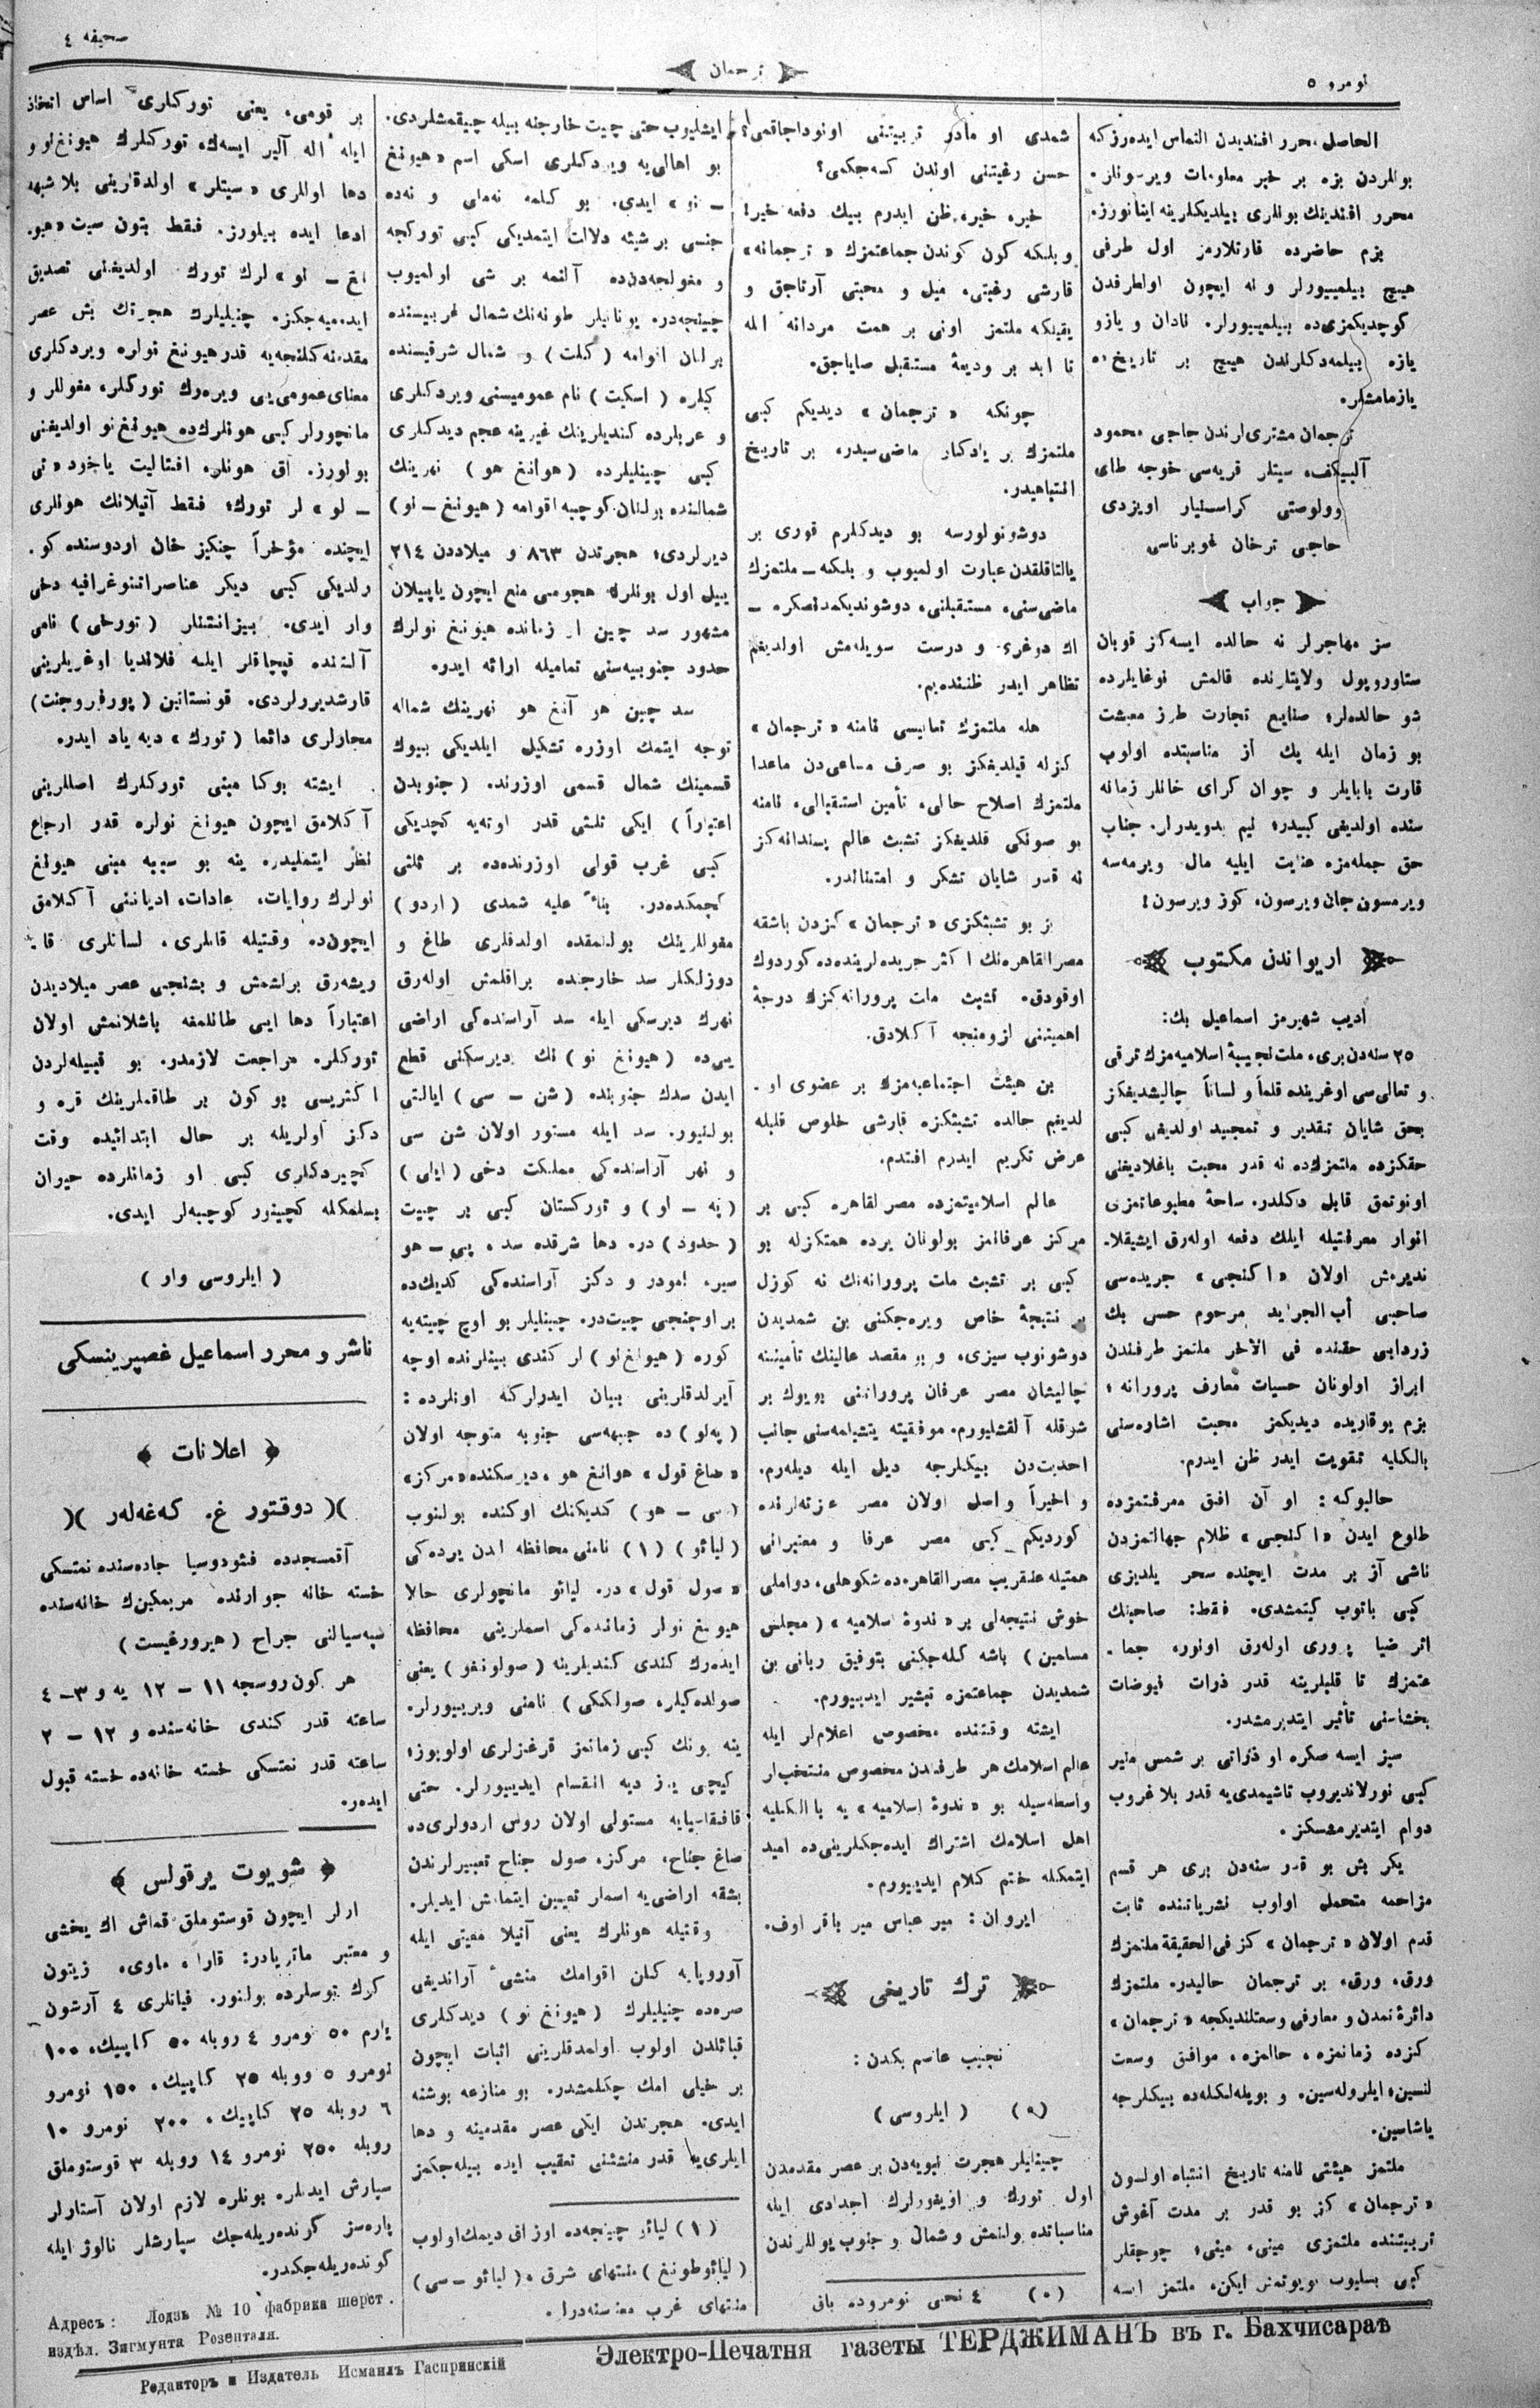 نومرو ٥
ترجمان
صحیفه ٤
الحاصل محرر افندیدن التماس ایده‌رزکه
بوللردن بزه بر خبر معلومات ویرسونلر.
محرر افندینك بوللری بیلدیکلرینه اینانورز.
بزم حاضرده قارتلارمز اول طرفی
هیچ بیلمییورلر و نه ایچون اولطرفدن
کوچدیکمزی‌ده بیلمییورلر. نادان و یازو
یازه بیلمه‌دکلرندن هیچ بر تاریخ‌ده
یازمامشلر.
ترجمان مشتری‌لرندن حاجی محمود
آلبیکف، سیتلر قریه‌سی خوجه طای
وولوصتی کراسنیار اویزدی
حاجی ترخان غوبرناسی
جواب
سز مهاجرلر نه حالده ایسه‌کز قوبان
ستاوروپول ولایتلرنده قالمش نوغایلرده
شو حالده‌لر؛ صنایع تجارت طرز معیشت
بو زمان ایله پك آز مناسبتده اولوب
قارت بابایلر و چوان کرای خانلر زمانه
سنده اولدیغی کبیدر؛ نیم بدویدرلر. جناب
حق جمله‌مزه عنایت ایلیه مال ویرمه‌سه
ویرمسون جان ویرسون، کوز ویرسون!
اریواندن مکتوب
ادیب شهیرمز اسماعیل بك:
٢٥ سنه‌دن بری، ملت نجیبهٔ اسلامیه‌مزك ترقی
و تعالی‌سی اوغرینده قلماً و لساناً چالیشدیغکز
بحق شایان تقدیر و تمجید اولدیغی کبی
حقکزده ملتمزك‌ده نه قدر محبت باغلادیغنی
اونوتمق قابل دکلدر. ساحهٔ مطبوعاتمزی
انوار معرفتیله ایلك دفعه اوله‌رق ایشیقلا.
ندیرمش اولان «اکنجی» جریده‌سی
صاحبی أب‌الجراید مرحوم حسن بك
زردابی حقنده فی الآخر ملتمز طرفندن
ابراز اولونان حسیات معارف پرورانه؛
بزم یوقاریده دیدیکمز محبت اشاره‌سنی
بالکلیه تقویت ایدر ظن ایدرم.
حالبوکه: او آن افق معرفتمزده
طلوع ایدن «اکنجی» ظلام جهالتمزدن
ناشی آز بر مدت ایچنده سحر یلدیزی
کبی باتوب کیتمشدی. فقط: صاحبنك
اثر ضیا پروری اوله‌رق اونور، جما.
عتمزك تا قلبلرینه قدر ذرات فیوضات
بخشاسنی تأثیر ایتدیرمشدر.
سز ایسه صکره او ذراتی بر شمس منیر
کبی نورلاندیروب تاشیمدی‌یه قدر بلا غروب
دوام ایتدیرمشسکز.
یکرمی بش بو قدر سنه‌دن بری هر قسم
مزاحمه متحمل اولوب نشریاتنده ثابت
قدم اولان «ترجمان» کز فی‌الحقیقة ملتمزك
ورق، ورق، بر ترجمان حالیدر. ملتمزك
دائرهٔ تمدن و معارفی وسعتلندیکجه «ترجمان»
کزده زمانمزه، حالمزه، موافق وسعت
لنسین، ایلروله‌سین، و بویله‌لکله‌ده بیکلرجه
یاشاسین.
ملتمز هیئتی نامنه تاریخ انتباه اولسون
«ترجمان» کز بو قدر بر مدت آغوش
تربیتنده ملتمزی مینی، مینی، چوجقلر
کبی بسلیوب بویوتمش ایکن، ملتمز ایسه
شمدی او مادر تربیتنی اونوداجاقمی؟
حسن رغبتنی اوندن کسه‌جکمی؟
خیر، خیر، ظن ایدرم بیك دفعه خیر!
وبلکه کون کوندن جماعتمزك «ترجمانه»
قارشی رغبتی، میل و محبتی آرتاجق و
یقینکه ملتمز اونی بر همت مردانه الله
تا ابد بر ودیعهٔ مستقبل صایاجق.
چونکه «ترجمان» دیدیکم کبی
ملتمزك بر یادکار ماضی‌سیدر، بر تاریخ
انتباهیدر.
دوشونولورسه بو دیدکلرم قوری بر
یالتاقلقدن عبارت اولمیوب و بلکه ــ ملتمزك
ماضی‌سنی، مستقبلنی، دوشوندیکمدنصکره ــ
اك دوغری و درست سویله‌مش اولدیغم
تظاهر ایدر ظننده‌یم.
هله ملتمزك تعالیسی نامنه «ترجمان»
کزله قیلدیغکز بو صرف مساعی‌دن ماعدا
ملتمزك اصلاح حالی، تأمین استقبالی، نامنه
بو صوکی قلدیغکز تشبث عالم پسندانه‌کز
نه قدر شایان تشکر و امتناندر.
بز بو تشبثکزی «ترجمان» کزدن باشقه
مصرالقاهره‌نك اکثر جریده‌لرینده‌ده کوردوك
اوقودق. تشبث ملت پرورانه‌کزك درجهٔ
اهمیتنی لزومنجه آکلادق.
بن هیئت اجتماعیه‌مزك بر عضوی او.
لدیغم حالده تشبثکزه قارشی خلوص قلبله
عرض تکریم ایدرم افندم.
عالم اسلامیتمزده مصرالقاهره کبی بر
مرکز عرفانمز بولونان یرده همتکزله بو
کبی بر تشبث ملت پرورانه‌نك نه کوزل
بر نتیجهٔ خاص ویره‌جکنی بن شمدیدن
دوشونوب سیزی، و بو مقصد عالینك تأمیننه
چالیشان مصر عرفان پرورانی بویوك بر
شوقله آلقشلیورم. موفقیته یتشیلمه‌سنی جانب
احدیت‌دن بیکلرجه دیل ایله دیله‌رم.
و اخیراً واصل اولان مصر غزته‌لرنده
کوردیکم کبی مصر عرفا و معتبرانی
همتیله عنقریب مصرالقاهره‌ده شکوهلی، دواملی
خوش نتیجه‌لی بر «ندوهٔ اسلامیه» (مجلس
مسلمین) باشه کله‌جکنی بتوفیق ربانی بن
شمدیدن جماعتمزه تبشیر ایدییورم.
ایشته وقتنده مخصوص اعلام‌لر ایله
عالم اسلامك هر طرفندن مخصوص منتخب‌لر
واسطه‌سیله بو «ندوهٔ اسلامیه» یه بالکلیه
اهل اسلامك اشتراك ایده‌جکلرینی‌ده امید
ایتمکله ختم کلام ایدییورم.
ایروان: میر عباس میر باقر اوف.
ترك تاریخی
نجیب عاصم بکدن:
(٥) (ایلروسی)
چینلیلر هجرت نبویه‌دن بر عصر مقدمدن
اول تورك و اویغورلرك اجدادی ایله
مناسباتده بولنمش و شمال و جنوب یوللرندن
(٥) ٤ نجی نومروده باق
ایشلیوب حتی چیت خارجنه بیله چیقمشلردی.
بو اهالی‌یه ویردکلری اسکی اسم «هیونغ
ــ نو» ایدی. بو کلمه نه‌ملی و نه‌ده
جنسی بر شیئه دلالت ایتمدیکی کبی تورکجه
و مغولجه‌دن‌ده آلنمه بر شی اولمیوب
چینجه‌در. یونانیلر طونه‌نك شمال غربیسنده
بولنان اقوامه (کلت) و شمال شرقیسنده
کیلره (اسکیت) نام عمومیسنی ویردکلری
و عربلرده کندیلرینك غیرینه عجم دیدکلری
کبی چینلیلرده (هوانغ هو) نهرینك
شمالنده بولنان کوچبه اقوامه (هیونغ ــ نو)
دیرلردی؛ هجرتدن ٨٦٣ و میلاددن ٢١٤
ییل اول بونلرك هجومی منع ایچون یاپیلان
مشهور سد چین او زمانده هیونغ نولرك
حدود جنوبیه‌سنی تمامیله ارائه ایدر.
سد چین هو آنغ هو نهرینك شماله
توجه ایتمك اوزره تشکیل ایلدیکی بیوك
قسمینك شمال قسمی اوزرنده (جنوبدن
اعتباراً) ایکی ثلثی قدر اوته‌یه کچدیکی
کبی غرب قولی اوزرنده‌ده بر ثلثی
کچمکده‌در. بناءً علیه شمدی (اردو)
مغوللرینك بولنمقده اولدقلری طاغ و
دوزلکلر سد خارجنده براقلمش اوله‌رق
نهرك دیرسکی ایله سد آراسنده‌کی اراضی
یی‌ده (هیونغ نو) نك دیرسکنی قطع
ایدن سدك جنوبنده (شن ــ سی) ایالتی
بولنیور. سد ایله مستور اولان شن سی
و نهر آراسنده‌کی مملکت دخی (ایلی)
(په ــ لو) و تورکستان کبی بر چیت
(حدود) در. دها شرقده سد، پی ــ هو
سیر، امودر و دکز آراسنده‌کی کدیك‌ده
بر اوچنجی چیت‌در. چینلیلر بو اوچ چیته‌یه
کوره (هیونغ‌نو) لر کندی بینلرنده اوچه
آیرلدقلرینی بیان ایدرلرکه اونلرده:
(په‌لو) ده جبهه‌سی جنوبه متوجه اولان
«صاغ قول» هوانغ هو، دیرسکنده «مرکز»
(سی ــ هو) کدیکنك اوکنده بولنوب
(لیائو) (١) نامنی محافظه ایدن یرده‌کی
«صول قول» در. لیائو مانچولری حالا
هیونغ نولر زمانده‌کی اسملرینی محافظه
ایده‌رك کندی کندیلرینه (صولونغو) یعنی
صولده‌کیلر، صولککی) نامنی ویرییورلر.
ینه بونك کبی زمانمز قرغزلری اولویوز؛
کیچی یوز دیه انقسام ایدییورلر. حتی
قافقاسیایه مستولی اولان روس اردولری‌ده
صاغ جناح، مرکز، صول جناح تعبیرلرندن
بشقه اراضی‌یه اسملر تعیین ایتمامش ایدیلر.
وقتیله هونلرك یعنی آتیلا معیتی ایله
آوروپایه کلن اقوامك منشی‌ٔ آراندیغی
صره‌ده چینلیلرك (هیونغ نو) دیدکلری
قبائلدن اولوب اولمدقلرینی اثبات ایچون
بر خیلی امك چکلمشدر. بو منازعه بوشنه
ایدی. هجرتدن ایکی عصر مقدمینه و دها
ایلری‌یه قدر منشئنی تعقیب ایده بیله‌جکمز
(١) لیائو چینجه‌ده اوزاق دیمك اولوب
(لیائوطونغ) منتهای شرق، (لیائو ــ سی)
منتهای غرب معناسنه‌در.
بر قومی، یعنی تورکلری اساس اتخاذ
ایله اله آلیر ایسه‌ك، تورکلرك هیونغ‌لو و
دها اوللری «سیتلر» اولدقلرینی بلا شبهه
ادعا ایده بیلورز. فقط بتون سیت «هیو.
نغ ــ نو» لرك تورك اولدیغنی تصدیق
ایده‌میه‌جکز. چینلیلرك هجرتك بش عصر
مقدمنه کلنجه‌یه قدر هیونغ نولره ویردکلری
معنای عمومی‌یی ویره‌رك تورکلر، مغوللر و
مانچورلر کبی هونلرك‌ده هیونغ‌نو اولدیغنی
بولورز. آق هونلر، افتالیت یاخود «تی
ــ لو» لر تورك؛ فقط آتیلانك هونلری
ایچنده مؤخراً چنکیز خان اردوسنده کو.
رلدیکی کبی دیکر عناصر اتنوغرافیه دخی
وار ایدی. بیزانتنلر (تورخی) نامی
آلتنده قپچاقلر ایله فلاندیا اوغریلرینی
قارشدیرولردی. قونستانین (پورفیروجنت)
مجارلری دائما (تورك) دیه یاد ایدر.
ایشته بوکا مبنی تورکلرك اصللرینی
آکلامق ایچون هیونغ نولره قدر ارجاع
نظر ایتملیدر. ینه بو سببه مبنی هیونغ
نولرك روایات، عادات، ادیاننی آکلامق
ایچون‌ده وقتیله قانلری، لسانلری قا.
ریشه‌رق برلشمش و بشنجی عصر میلادیدن
اعتباراً دها ایی طانلمغه باشلانمش اولان
تورکلره مراجعت لازمدر. بو قبیله‌لردن
اکثریسی بو کون بر طاقملرینك قره و
دکز اولریله بر حال ابتدائیده وقت
کچیردکلری کبی او زمانلرده حیوان
بسلمکله کچینور کوچبه‌لر ایدی.
(ایلروسی وار)
ناشر و محرر اسماعیل غصپرینسکی
اعلانات
دوقتور غ. که‌غه‌له‌ر
آقمسجدده فئودوسیا جاده‌سنده نمتسکی
خسته خانه جوارنده مریمکین‌ك خانه‌سنده
سپه‌سیالنی جراح (هیرورغیست)
هر کون روسجه ١١ ــ ١٢ یه و ٣ــ ٤
ساعته قدر کندی خانه‌سنده و ١٢ ــ ٢
ساعته قدر نمتسکی خسته خانه‌ده خسته قبول
ایده‌ر.
شویوت یرقولس
ارلر ایچون قوستوملق قماش اك یخشی
و معتبر ماتریادر: قارا، ماوی، زیتون
کرك توسلرده بولنور. فیاتلری ٤ آرشون
یارم ٥٠ نومرو ٤ روبله ٥٠ کاپیك، ١٠٠
نومرو ٥ روبله ٢٥ کاپیك، ١٥٠ نومرو
٦ روبله ٢٥ کاپیك، ٢٠٠ نومرو ١٠
روبله ٢٥٠ نومرو ١٤ روبله ٣ قوستوملق
سپارش ایدنلره بونلره لازم اولان آستارلر
پاره‌سز کونده‌ریله‌جك سپارشلر نالوژ ایله
کونده‌ریله‌جکدر.
Адресъ: Лодзь № 10 фабрика шерст.
издѣл. Зигмунта Розенталя.
Редакторъ и Издатель Исмаилъ Гаспринскій
Электро-Печатня газеты ТЕРДЖИМАНЪ въ г. Бахчисараѣ